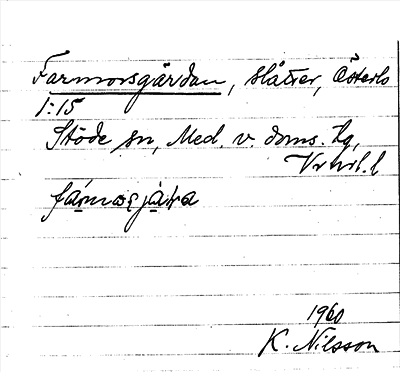 Farmorsgårdan, slåtter, Österlo
1:15
Stöde sn, Med. v. doms. tg,
Vrhrl. l
fármosjåɖa
1960
K. Nilsson